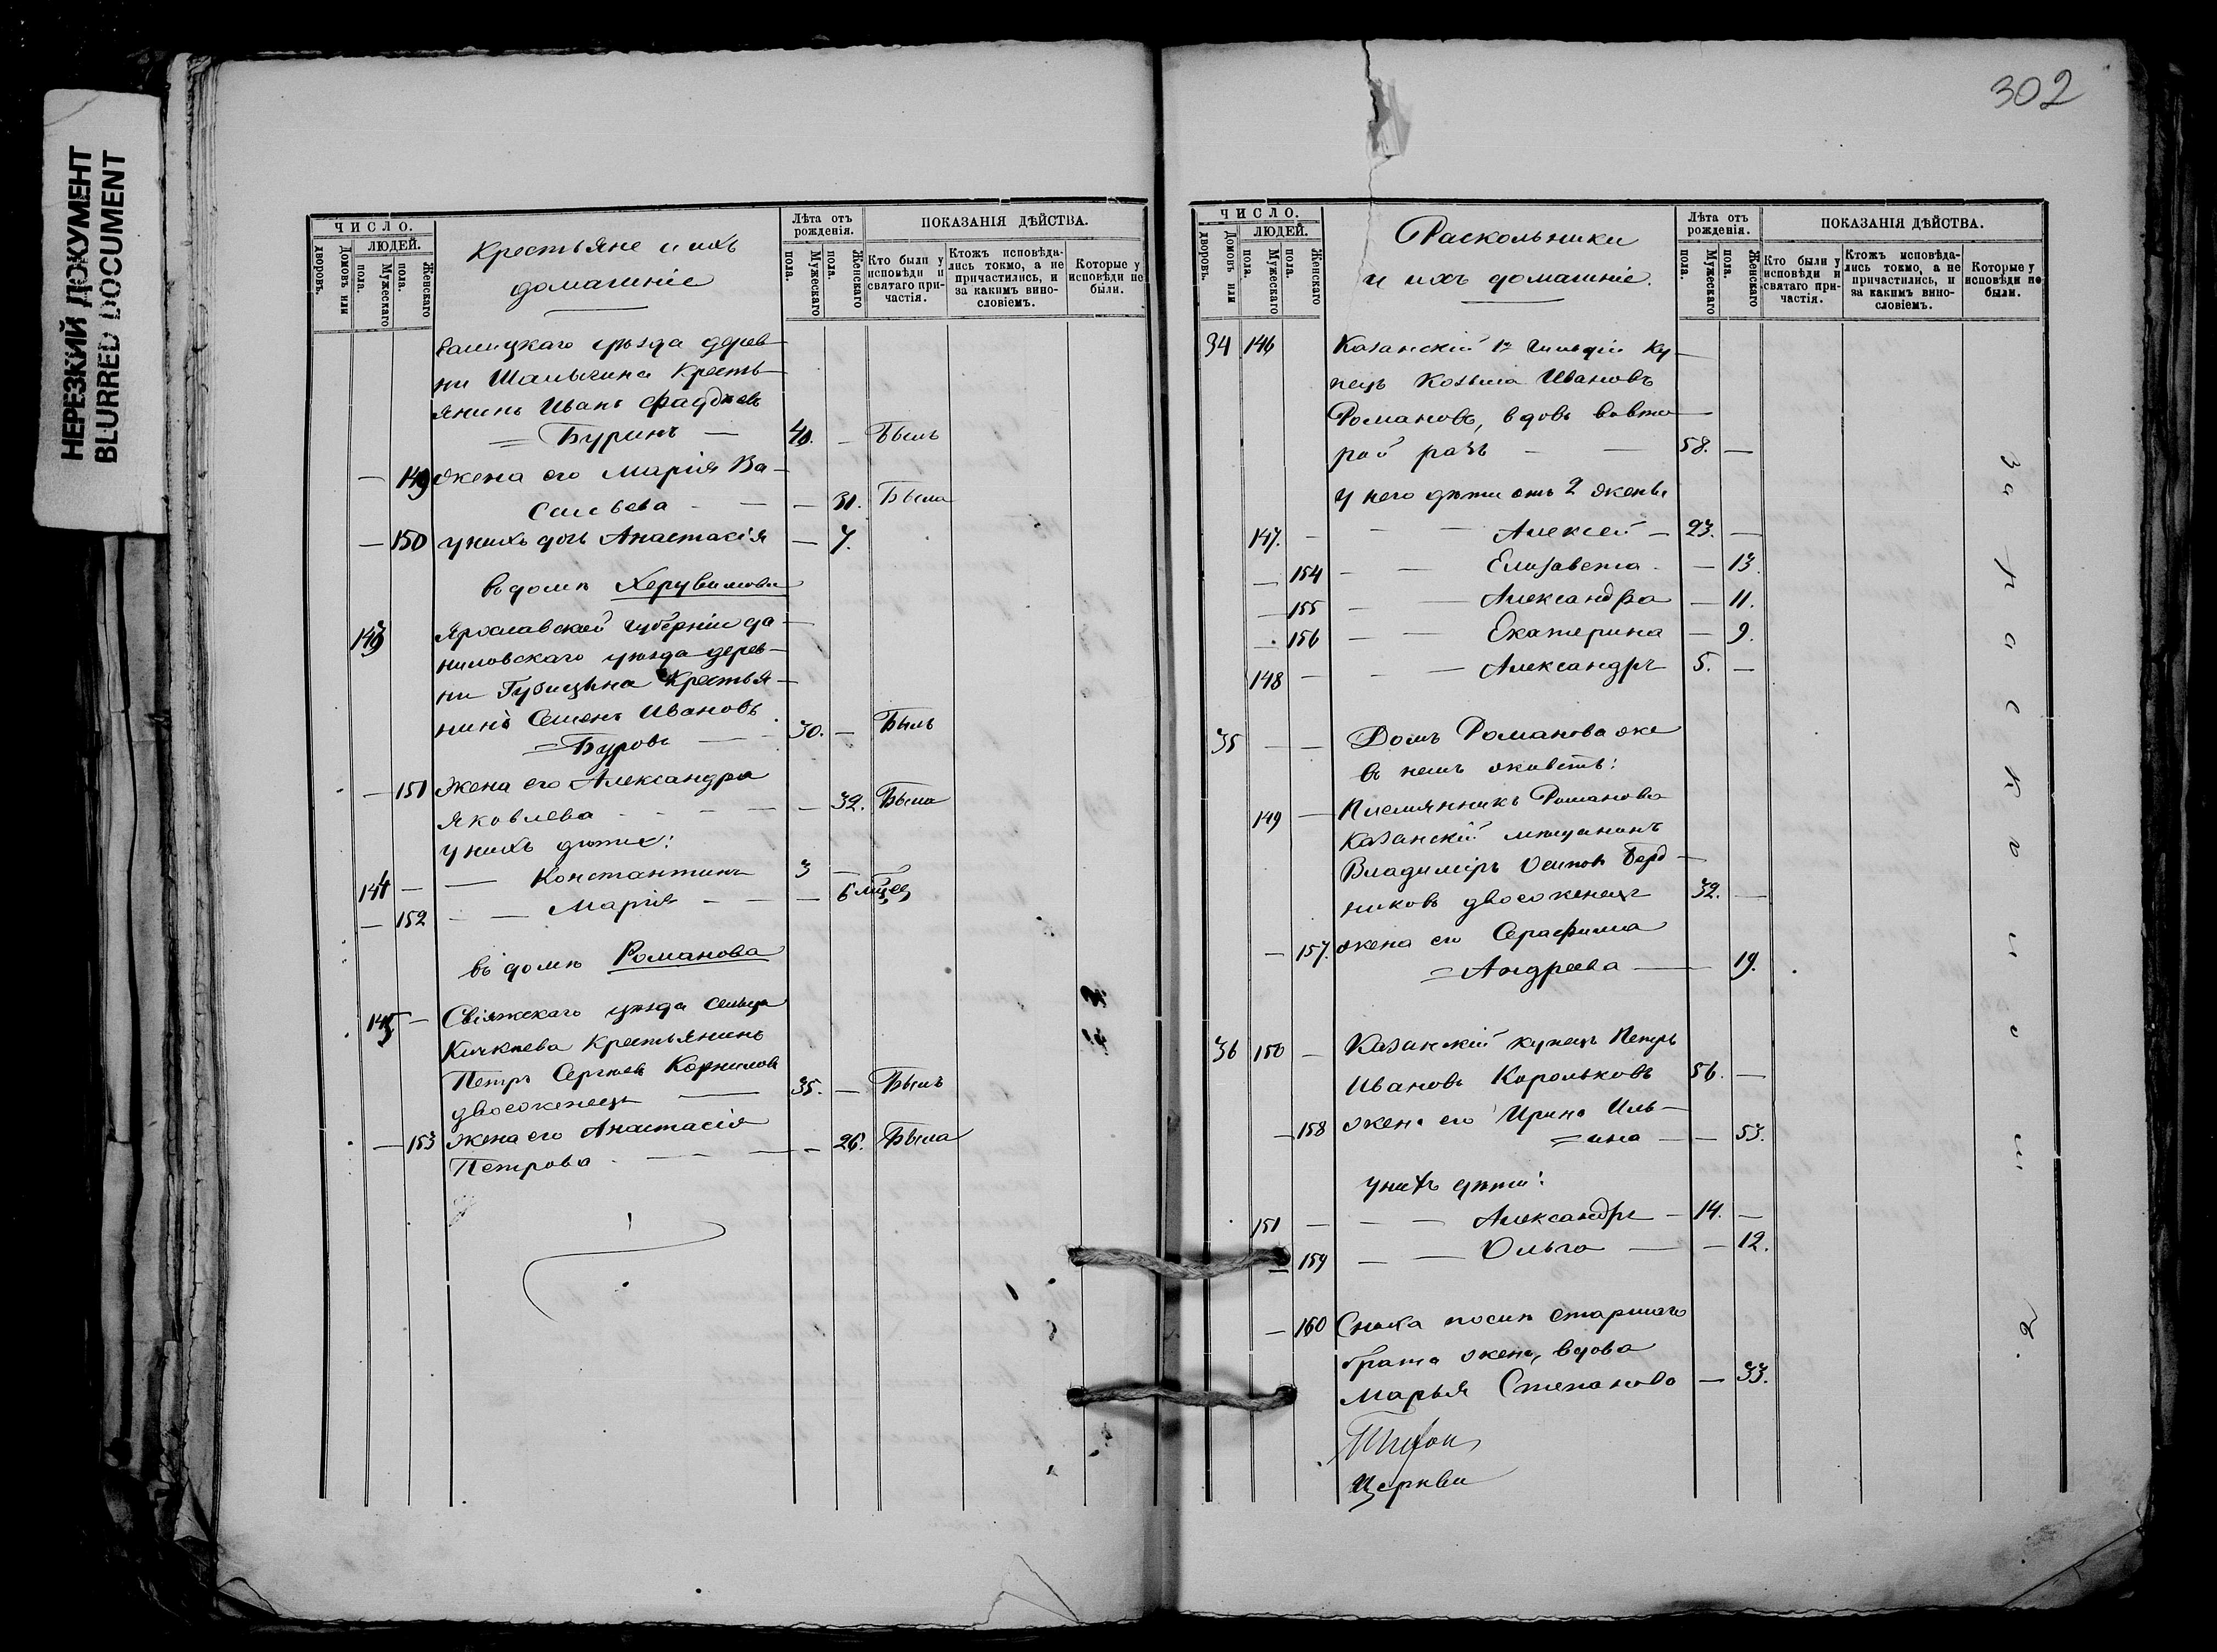 НЕРЕЗКИЙ ДОКУМЕНТ
BLURRED DOCUMENT
ЧИСЛО.
ЛЮДЕЙ.
Домовъ или дворовъ.
Мужескаго пола.
Женскаго пола.
Крестьяне и ихъ
домашніе
Лѣта отъ рожденія.
Мужескаго пола.
Женскаго пола.
ПОКАЗАНІЯ ДѢЙСТВА.
Кто были у исповѣди и святаго причастія.
Ктожъ исповѣдались токмо, а не причастились, и за какимъ винословіемъ.
Которые у исповѣди не были.
уѣзда дерев
ни Шалыгина Кресть-
янинъ Иванъ Фадѣевъ
= Буринъ — 40. — Былъ
— 149 жена его Марія Ва-
сильева — — 31. Была
— 150 у нихъ дочь Анастасія — 7.
въ домѣ Херувимова
143 Ярославской губерніи да-
ниловскаго уѣзда дерев-
ни Крестья-
нинъ Семенъ Ивановъ
= Буровъ — 30. — Былъ
— 151 жена его Александра
Яковлева — — 32. Была
у нихъ дѣти:
144 — — Константинъ 3 —
— 152 — — Марія — — 6 мѣсец
въ домѣ Романова
145 — Свіяжскаго уѣзда сельца
Кичкѣева Крестьянинъ
Петръ Сергѣевъ Корниловъ
двоеженецъ — 35. — Былъ
— 153 жена его Анастасія
Петрова — — 26. Была
302
ЧИСЛО.
ЛЮДЕЙ.
Домовъ или дворовъ.
Мужескаго пола.
Женскаго пола.
Раскольники
и ихъ домашніе.
Лѣта отъ рожденія.
Мужескаго пола.
Женскаго пола.
ПОКАЗАНІЯ ДѢЙСТВА.
Кто были у исповѣди и святаго причастія.
Ктожъ исповѣдались токмо, а не причастились, и за какимъ винословіемъ.
Которые у исповѣди не были.
34 146 Казанскій 1й гильдіи Ку-
пецъ Козьма Ивановъ
Романовъ, вдовъ во вто-
рой разъ — — 58. —
у него дѣти отъ 2 жены
147. — — — Алексей — 23. —
— 154 — — Елизавета — 13.
— 155 — — Александра — 11.
— 156 — — Екатерина — 9.
148 — — Александръ 5. —
35 — — Домъ Романова же
въ немъ живетъ:
149 — Племянникъ Романова
Казанскій мѣщанинъ
Владиміръ Осиповъ Берд-
никовъ двоеженецъ 32. —
— 157. жена его Серафима
= Андреева — 19.
36 150 — Казанскій купецъ Петръ
Ивановъ Корольковъ 56. —
— 158 жена его Ирина Иль-
= ина — — 53.
у нихъ дѣти:
151 — — — Александръ — 14. —
— 159 — — Ольга — — 12.
— 160 Сноха посли старшаго
брата жена, вдова
Марья Степанова — 33.
Церкви
За расколомъ.